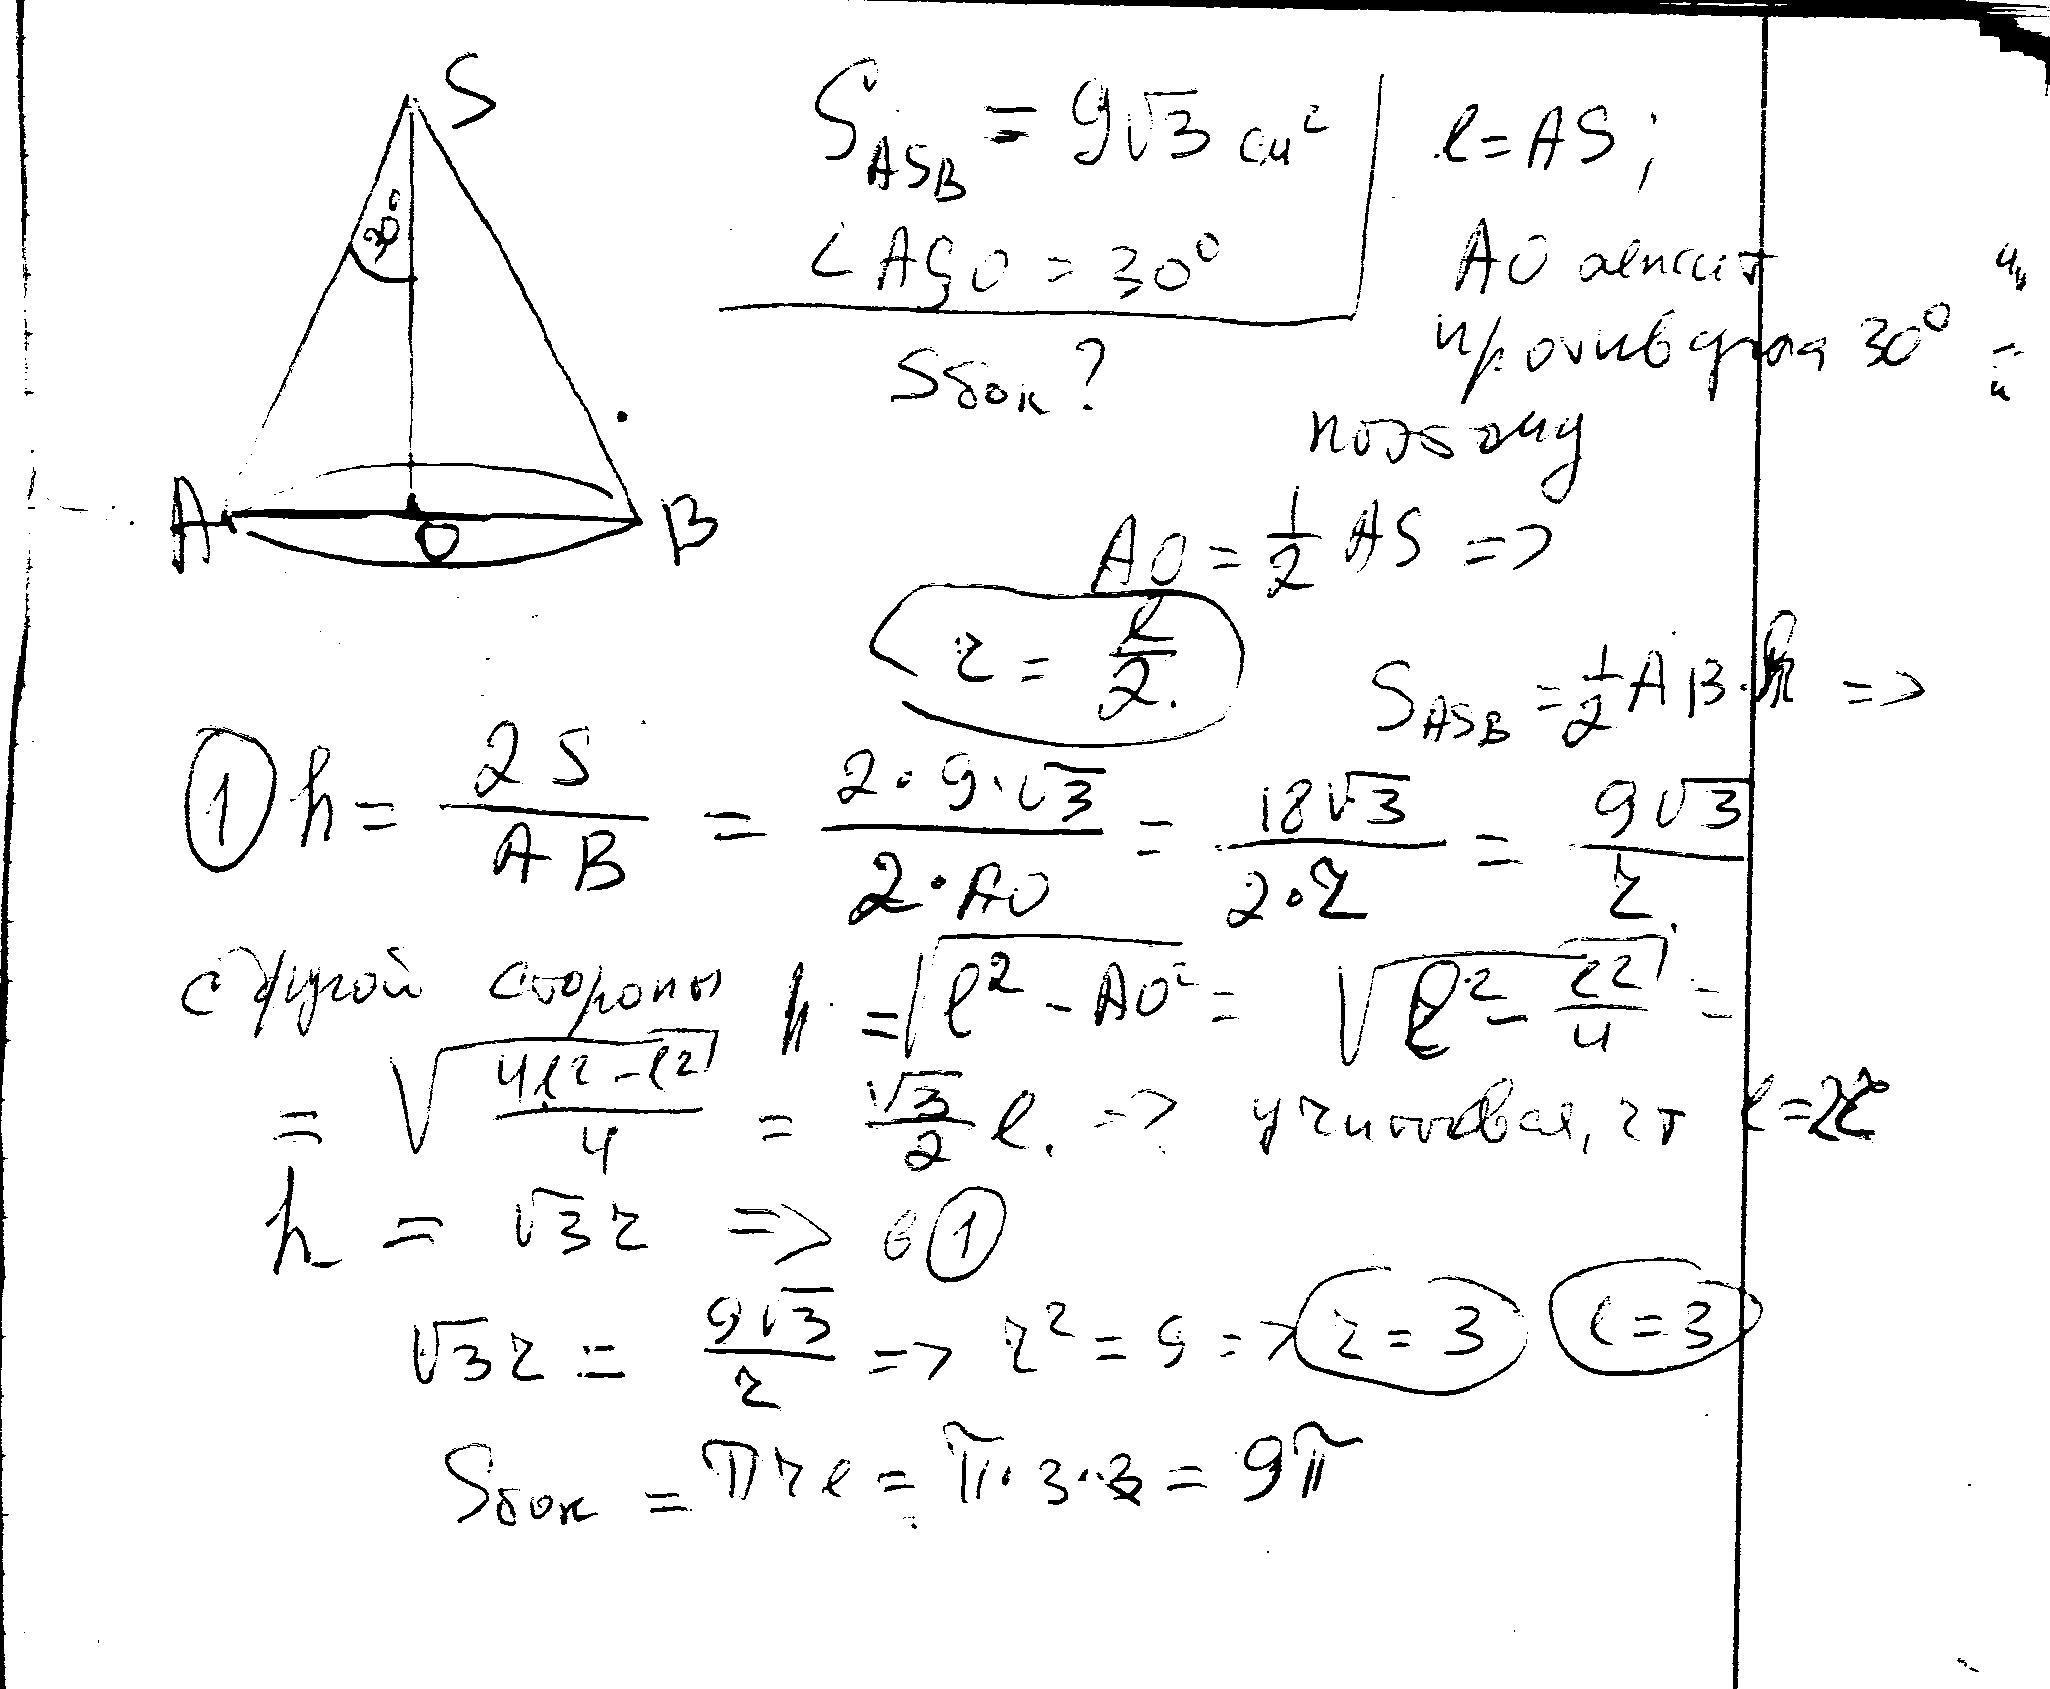 S
30°
A
O
B
S_ASB = 9√3 см²
∠ASO = 30°
Sбок?
l = AS;
AO лежит
против угла 30°
поэтому
AO = 1/2 AS =>
r = l/2.
S_ASB = 1/2 AB·h =>
① h = 2S/AB = 2·9·√3/2·AO = 18√3/2·r = 9√3/r.
с другой стороны h = √(l² - AO²) = √(l² - l²/4) =
= √((4l² - l²)/4) = √3/2 l. => учитывая, чт l = 2r
h = √3r => в ①
√3r = 9√3/r => r² = 9 => r = 3 l = 3
Sбок = πrl = π·3·3 = 9π